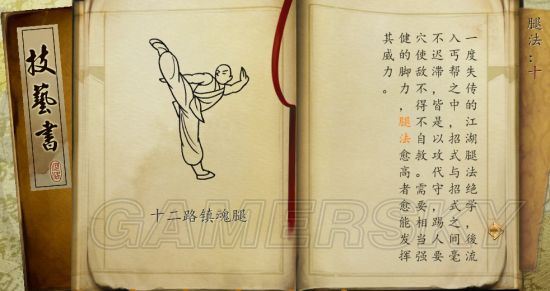 技藝書
十二路镇魂腿
一度失传的江湖腿法绝学，後流
入丐帮之中，招式与招式之间毫
不迟滞，皆是以攻代守，踢人要
穴使敌不得不自救。需要相当强
健的脚力，腿法愈高者愈能发挥
其威力。
腿法：十
GAMERSKY